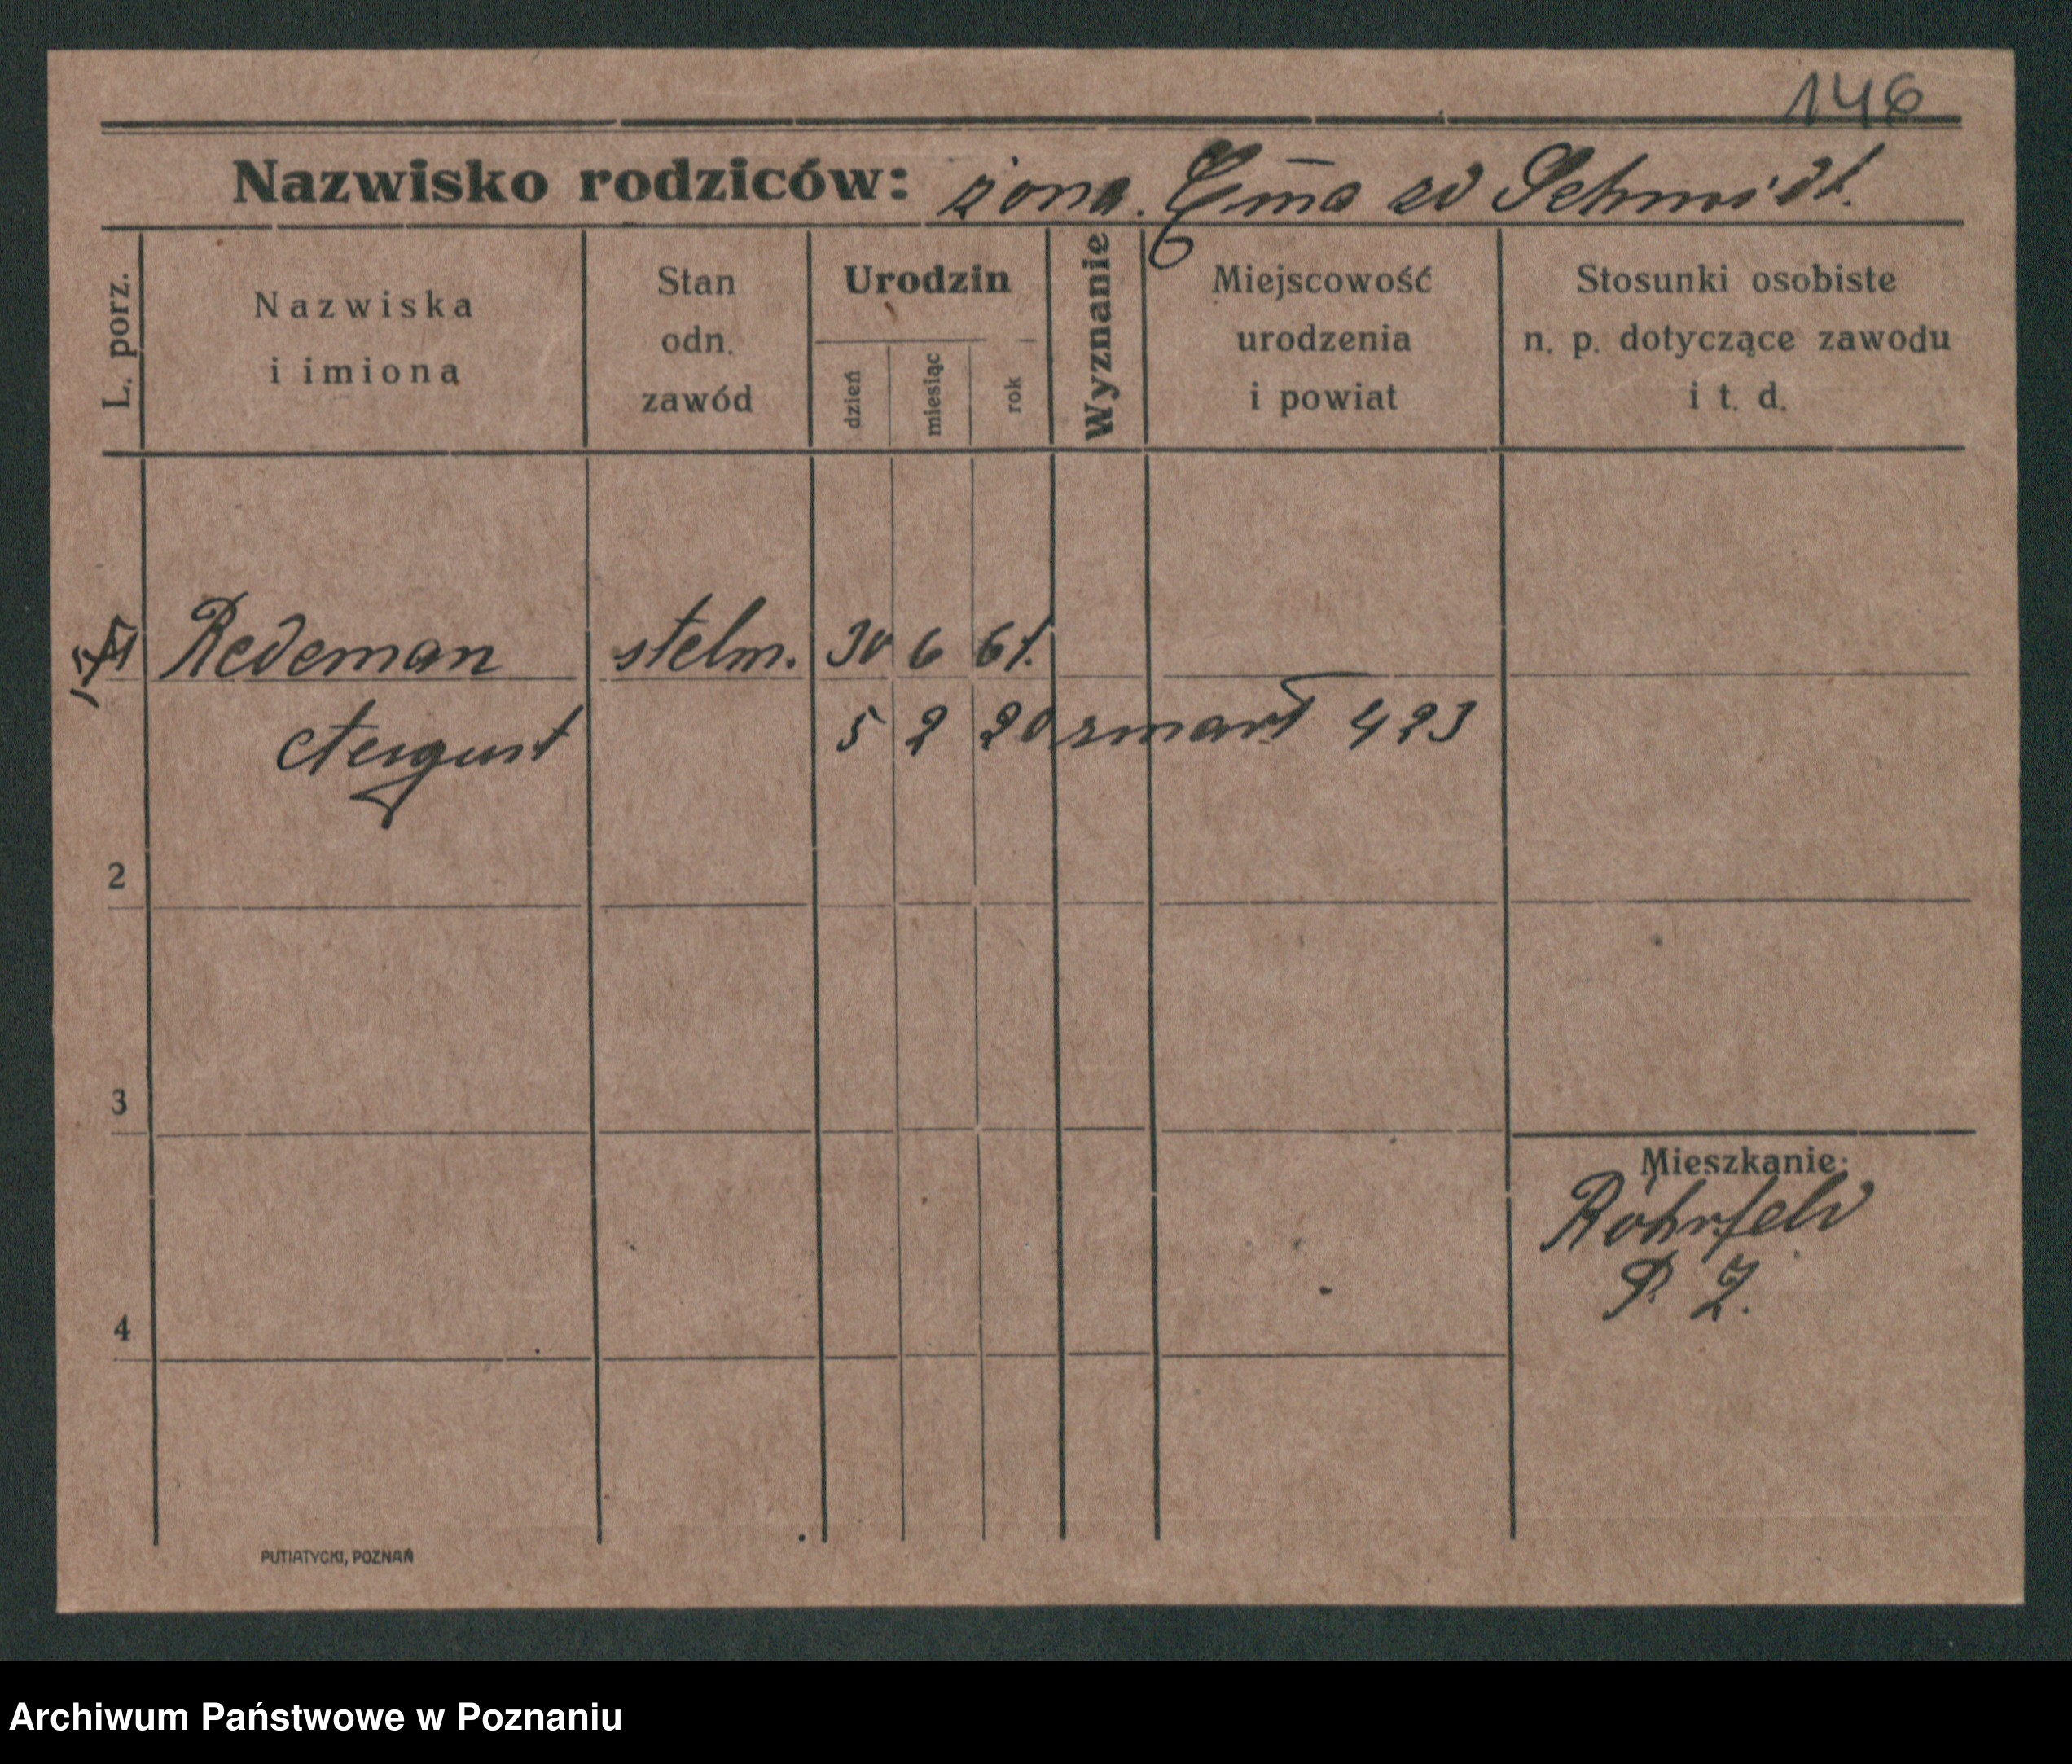 146
Nazwisko rodziców: żona. Em̄a zd Schmidt.
L. porz.
Nazwiska
i imiona
Stan
odn.
zawód
Urodzin
dzień
miesiąc
rok
Wyznanie
Miejscowość
urodzenia
i powiat
Stosunki osobiste
n. p. dotyczące zawodu
i t. d.
Redeman stelm. 30 6 61.
August 5 2 20 zmarł 423
2
3
Mieszkanie:
Röhrfeld
P. Z.
4
PUTIATYCKI, POZNAŃ
Archiwum Państwowe w Poznaniu